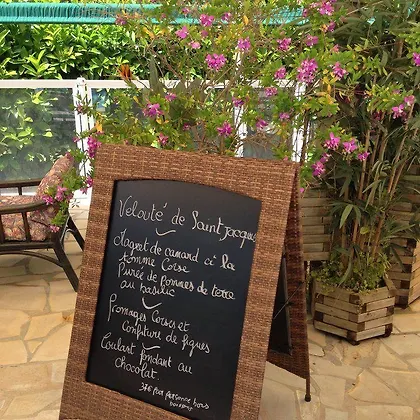 Velouté de Saint Jacques
Magret de canard à la
Pomme Corse
Purée de pommes de terre
au basilic
Fromages Corses et
Confiture de figues
Coulant fondant au
chocolat.
37€ par personne hors
boissons